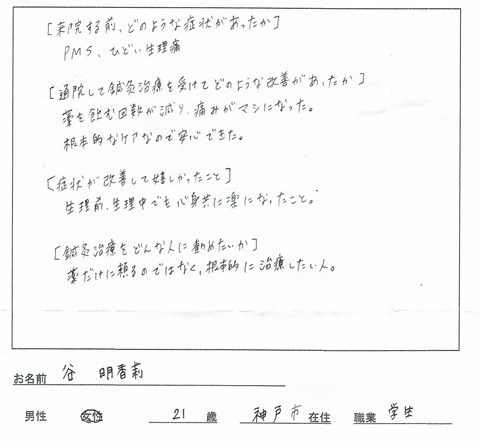 [来院する前、どのような症状があったか]
PMS、ひどい生理痛
[通院して鍼灸治療を受けてどのような改善があったか]
薬を飲む回数が減り、痛みがマシになった。
根本的なケアなので安心できた。
[症状が改善して嬉しかったこと]
生理前、生理中でも心身共に楽になったこと。
[鍼灸治療をどんな人に勧めたいか]
薬だけに頼るのではなく、根本的に治療したい人。
お名前 谷 明香莉
男性 女性 21 歳 神戸市 在住 職業 学生